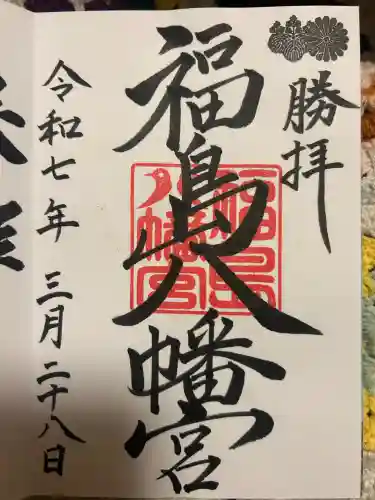 勝拝
福島八幡宮
福島
八幡宮
令和七年 三月二十八日